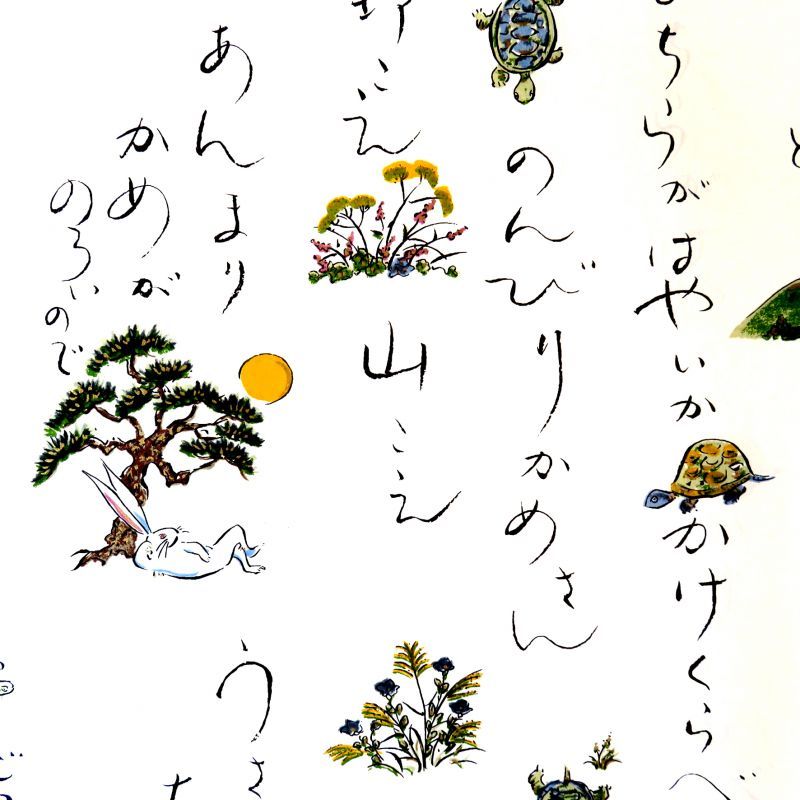 ちらがはやいか
かけくらべ
のんびりかめさん
こえ
山こえ
あんまり
かめが
のろいので
うさ